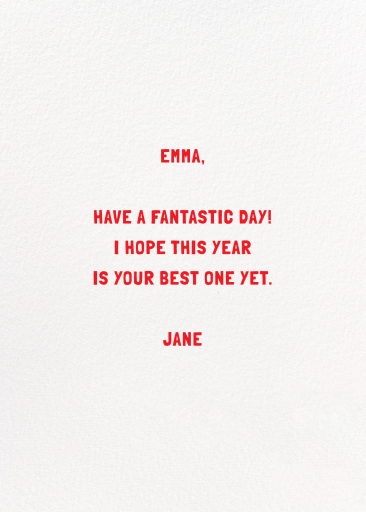 EMMA,
HAVE A FANTASTIC DAY!
I HOPE THIS YEAR
IS YOUR BEST ONE YET.
JANE